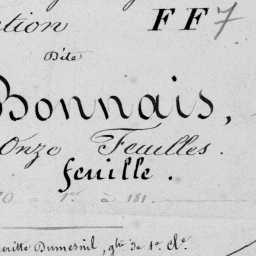 ction F F 7
Dite
Bonnais,
Onze Feuilles.
feuille.
à 181
Dumesnil, g^(de) de 1^(re) Cl^e.